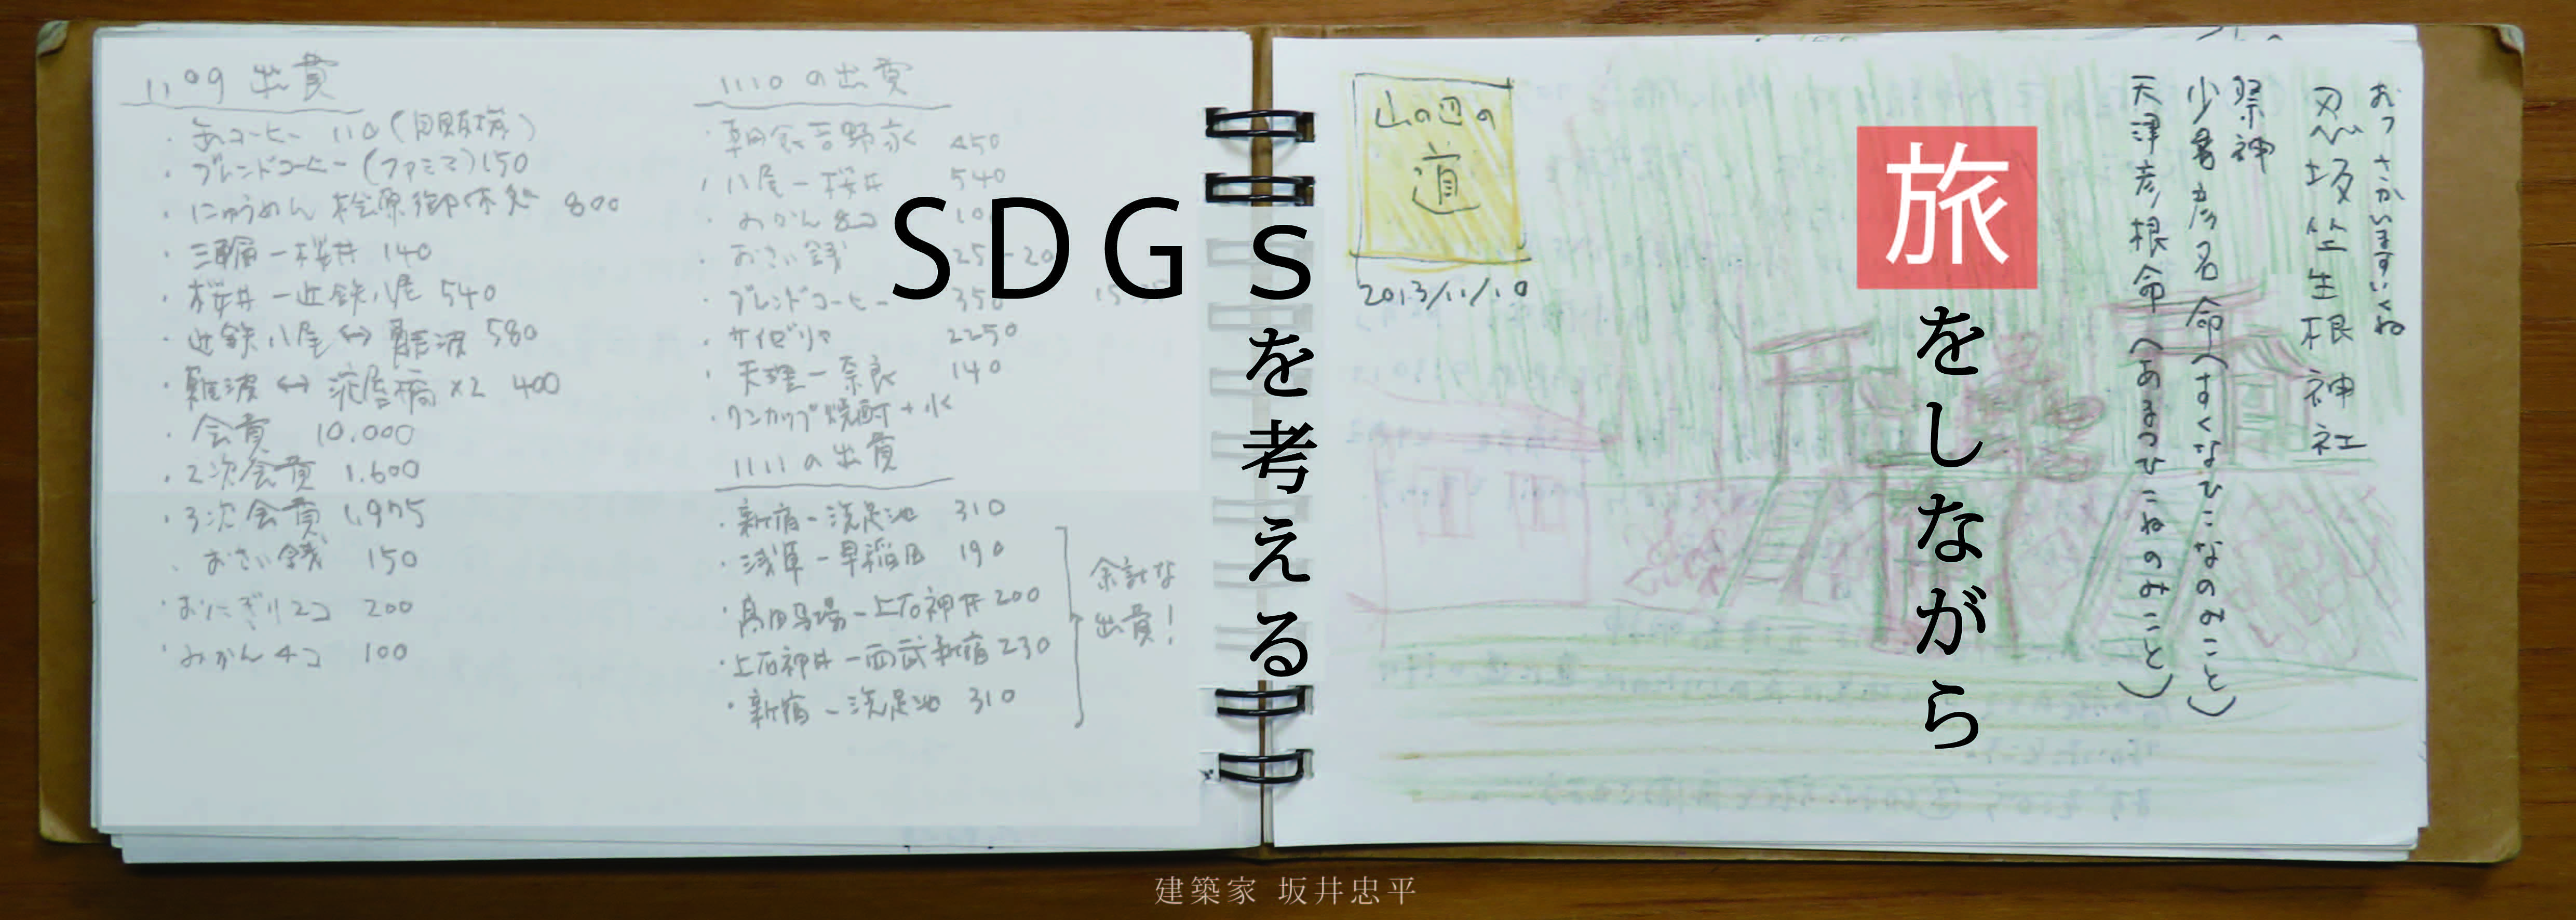 旅をしながら
SDGsを考える
1109 出費
・缶コーヒー 110 (自販機)
・ブレンドコーヒー (ファミマ) 150
・にゅうめん 桧原御休処 800
・三輪－桜井 140
・桜井－近鉄八尾 540
・近鉄八尾⇔難波 580
・難波⇔淀屋橋 ×2 400
・会費 10,000
・2次会費 1,600
・3次会費 1,975
・おさい銭 150
・おにぎり2コ 200
・みかん4コ 100
1110 の出費
・朝食吉野家 450
・八尾－桜井 540
・みかん
・おさい銭
・ブレンドコーヒー 350
・サイゼリヤ 2250
・天理－奈良 140
・ワンカップ焼酎＋水
1111 の出費
・新宿－洗足池 310
・浅草－早稲田 190
・高田馬場－上石神井 200
・上石神井－西武新宿 230
・新宿－洗足池 310
余計な
出費!
山の辺の
道
2013/11/10
おっさかいますいくね
忍坂坐生根神社
祭神
少彦名命(すくなひこなのみこと)
天津彦根命(あまつひこねのみこと)
建築家 坂井忠平